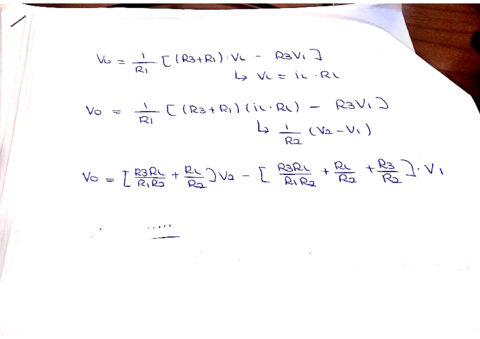 Vo = 1/R1 [(R3+R1)·VL - R3V1]
↳ VL = iL·RL
Vo = 1/R1 [(R3+R1)(iL·RL) - R3V1]
↳ 1/R2 (V2-V1)
Vo = [R3RL/R1R2 + RL/R2]V2 - [R3RL/R1R2 + RL/R2 + R3/R2]·V1
.....